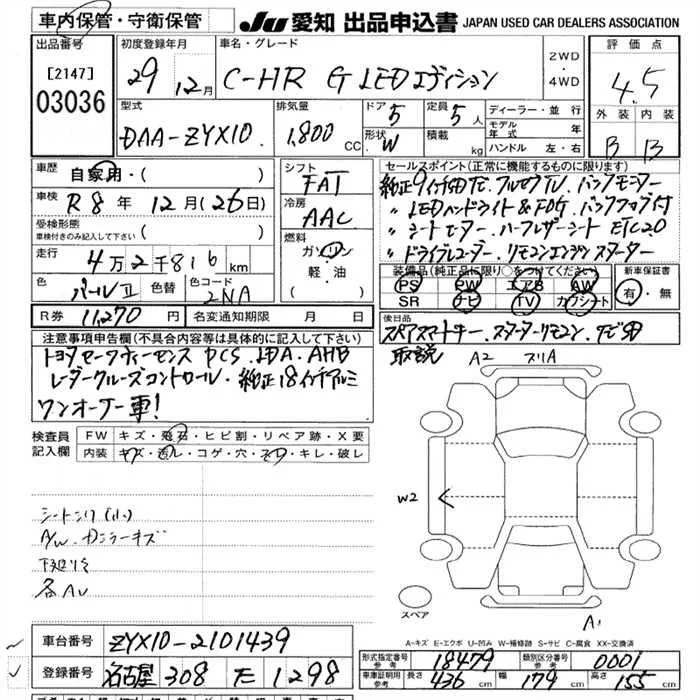 車内保管・守衛保管
JU 愛知 出品申込書 JAPAN USED CAR DEALERS ASSOCIATION
出品番号
[2147]
03036
初度登録年月
29年 12月
車名・グレード
C-HR G LEDエディション
2WD
・
4WD
評価点
4.5
外装 内装
B B
型式
DAA-ZYX10
排気量
1,800 CC
ドア 5
形状 W
定員 5人
積載 kg
ディーラー・並行
モデル年式 年
ハンドル 左・右
車歴 自家用・( )
車検 R8年 12月(26日)
受検形態
車検付きのみ記入して下さい ( )
走行 4万2千816km
色 パールⅡ 色替 色コード 2NA
R券 11,270円 名変通知期限 月 日
シフト
FAT
冷房
AAC
燃料
ガソリン
軽・油
( )
セールスポイント(正常に機能するものに限ります)
純正9インチSDナビ. フルセグTV. バックモニター
〃 LEDヘッドライト&FOG. バックフォグ付
〃 シートヒーター. ハーフレザーシート ETC2.0
〃 ドライブレコーダー. リモコンエンジンスターター
装備品(純正品に限り○をつけてください)
PS PW エアB AW
SR ナビ TV カワシート
新車保証書
有・無
後日品
スペアスマートキー. スターターリモコン. ナビSD
取説
注意事項申告欄(不具合内容等は具体的に記入して下さい)
トヨタセーフティーセンス PCS. LDA. AHB
レーダークルーズコントロール. 純正18インチアルミ
ワンオーナー車!
検査員記入欄
FW キズ・飛石・ヒビ割・リペア跡・X要
内装 キズ・汚レ・コゲ・穴・スレ・キレ・破レ
シートシワ(小)
A/W. Dミラーキズ
下廻り
各AU
A2 スリA
W2
A1
スペア
A-キズ E-エクボ U-凹み W-補修跡 S-サビ C-腐食 XX-交換済
車台番号 ZYX10-2101439
登録番号 名古屋 308 モ 1298
形式指定番号 参考 18479 類別区分番号 参考 0001
車庫証明用 参考 長さ 436cm 幅 179cm 高さ 155cm